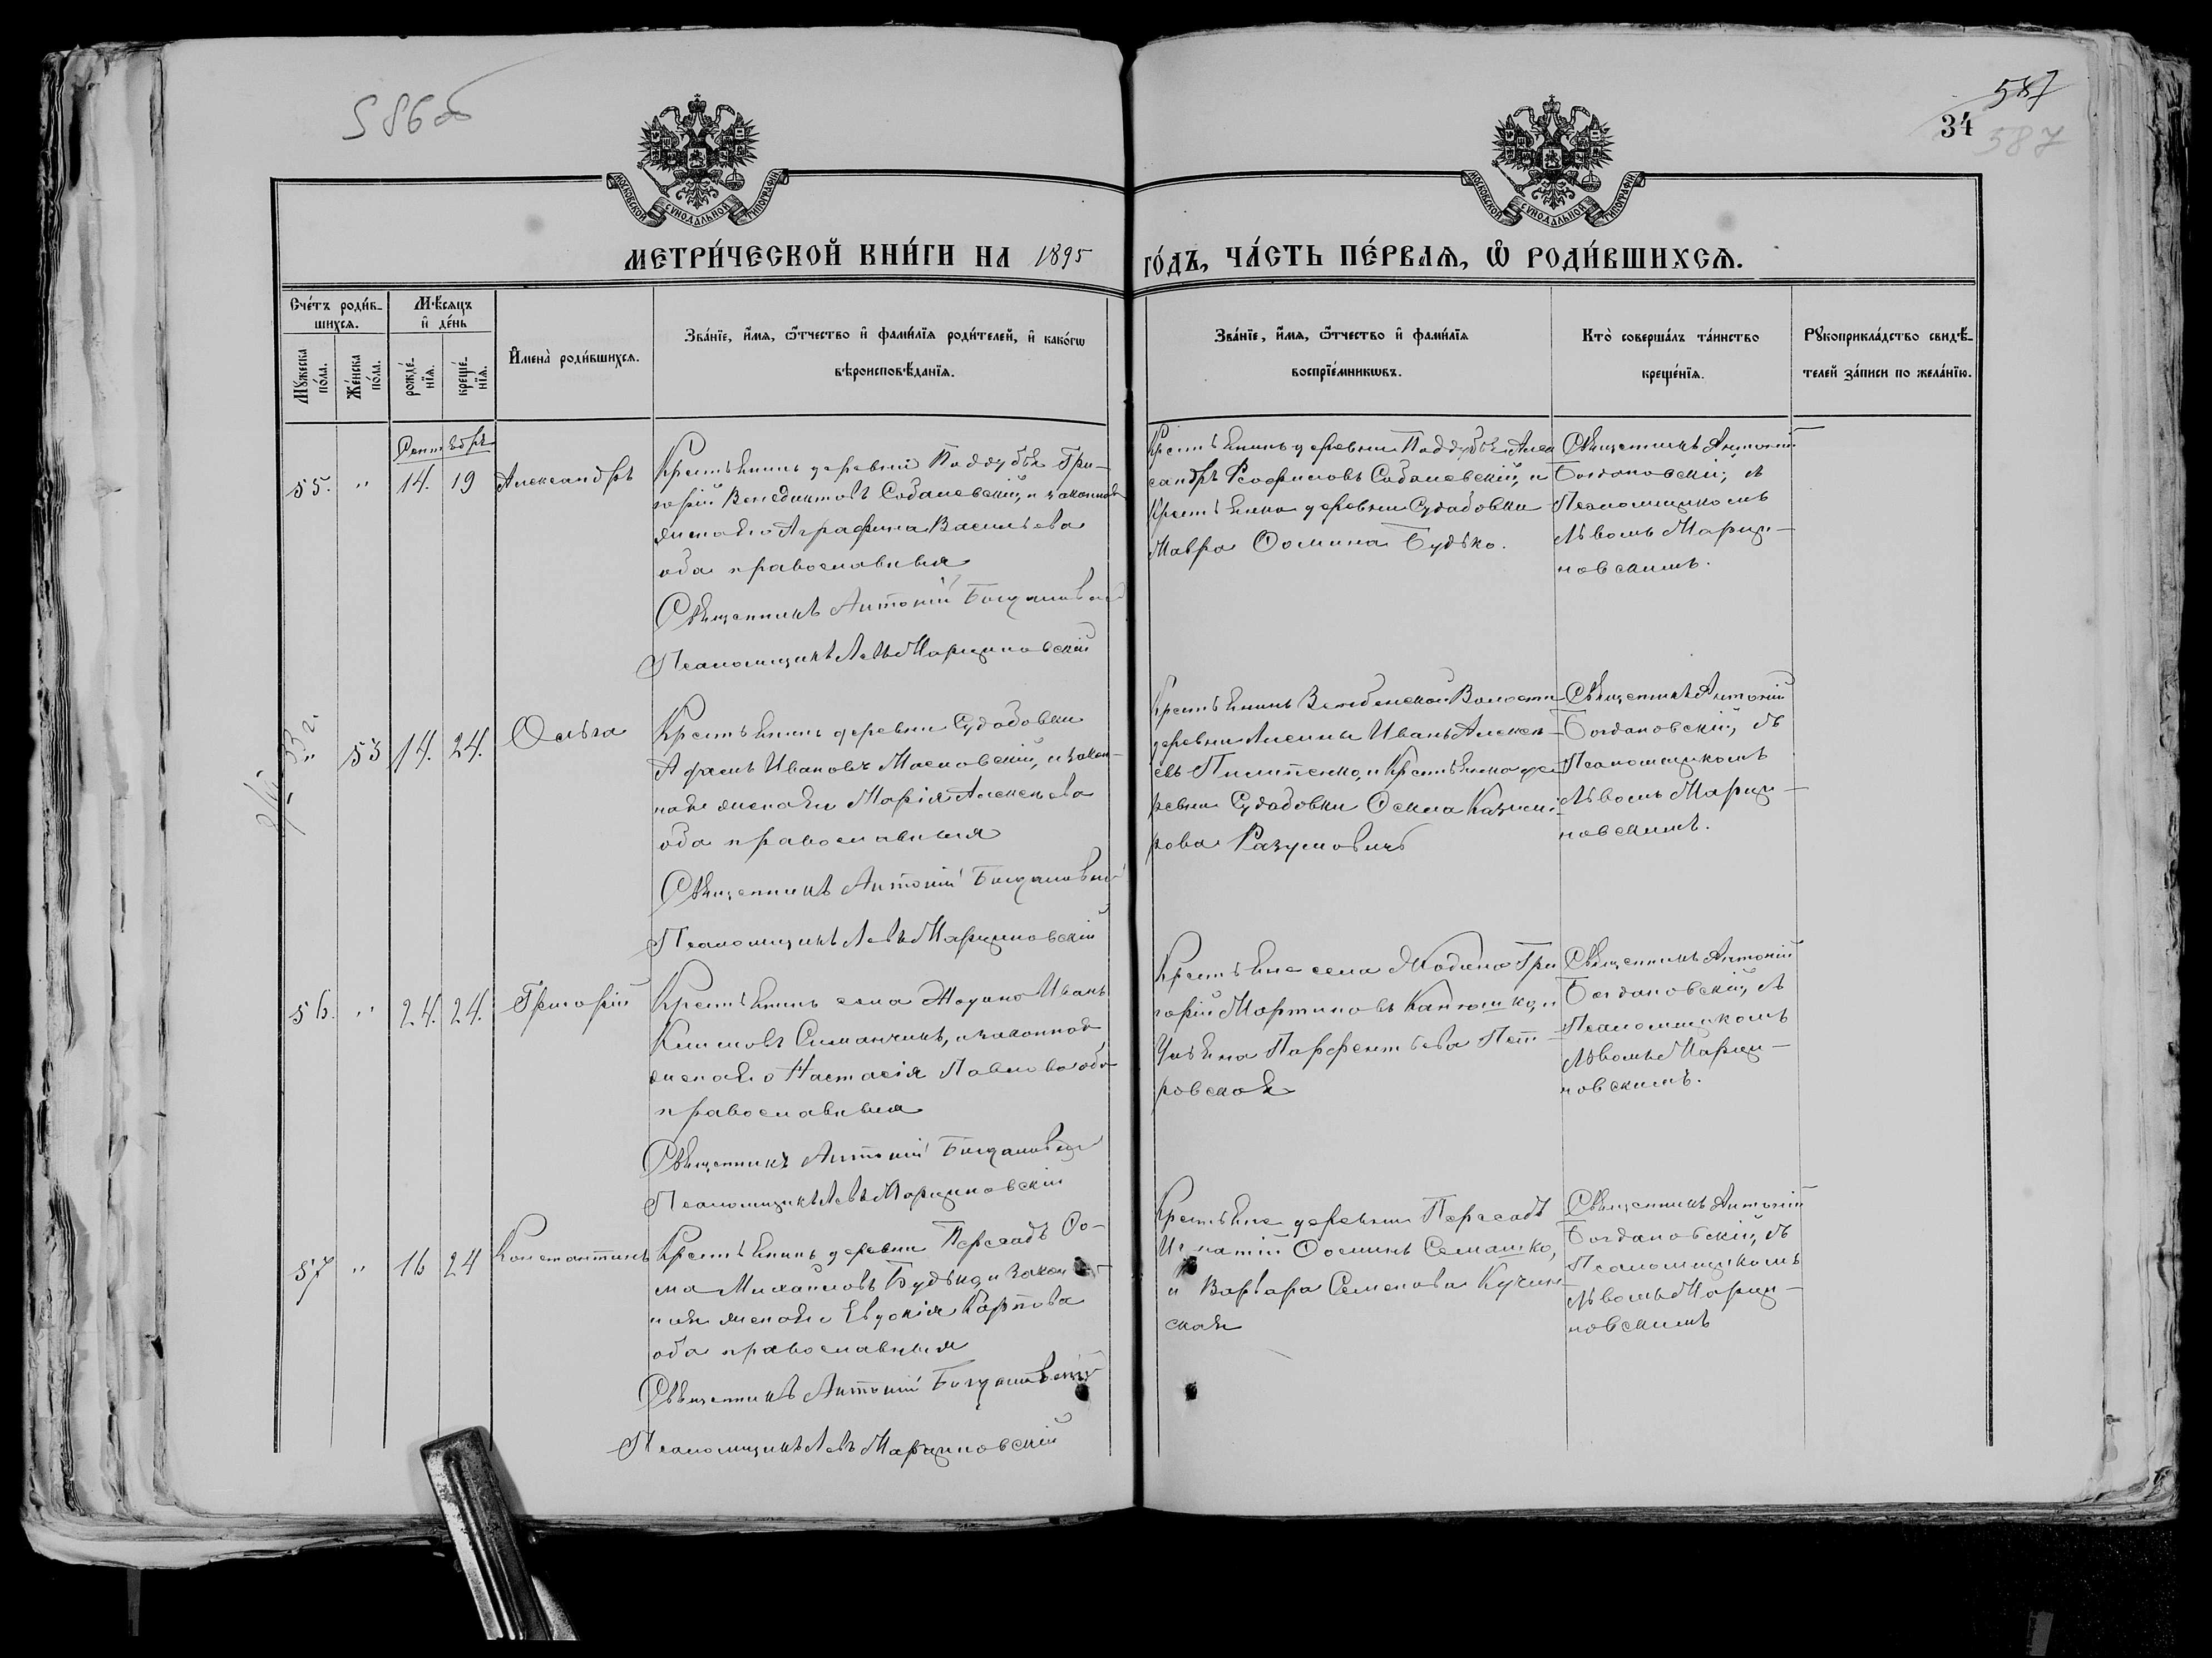 586об
587
34
587
МОСКОВСКОЙ СѴНОДАЛЬНОЙ ТИПОГРАФІИ
МОСКОВСКОЙ СѴНОДАЛЬНОЙ ТИПОГРАФІИ
МЕТРИ́ЧЕСКОЙ КНИ́ГИ НА 1895
ГО́ДЪ, ЧА́СТЬ ПЕ́РВАѦ, Ѡ҆ РОДИ́ВШИХСѦ.
Сче́тъ роди́в-
шихсѧ.
Мꙋ́жеска
по́ла.
Же́нска
по́ла.
Мѣ́сяцъ
и҆ де́нь
рожде́-
нїѧ.
креще́-
нїѧ.
И҆мена̀ роди́вшихсѧ.
Зва́нїе, и҆́мѧ, ѻ҆́тчество и҆ фами́лїѧ роди́телей, и҆ како́гѡ
вѣроисповѣ́данїѧ.
Зва́нїе, и҆́мѧ, ѻ҆́тчество и҆ фами́лїѧ
воспрїе́мникѡвъ.
Кто̀ соверша́лъ та́инство
креще́нїѧ.
Рꙋкоприкла́дство свидѣ́-
телей за́писи по жела́нїю.
Сентябрь
55. " 14. 19 Александръ
Крестьянинъ деревни Поддубья Гри-
горій Венедиктовъ Соболевскій, и законная
жена его Аграфина Васильева
оба православныя
Священникъ Антоній Богдановскій
Псаломщикъ Левъ Марциновскій
Крестьянинъ деревни Поддубья Алек
сандръ Ѳеофиловъ Соболевскій, и
Крестьянка деревни Судобовки
Мавра Ѳомина Будько.
Священникъ Антоній
Богдановскій, съ
Псаломщикомъ
Львомъ Марци-
новскимъ.
" 53 14. 24. Ольга
Крестьянинъ деревни Судобовки
Адамъ Ивановъ Масловскій, и закон-
ная жена его Марія Алексѣева
оба православныя
Священникъ Антоній Богдановскій
Псаломщикъ Левъ Марциновскій
Крестьянинъ Волости
деревни Иванъ Алексѣ-
евъ Пилипенко, и Крестьянка де
ревни Судобовки Казими-
рова Разумовичъ
Священникъ Антоній
Богдановскій, съ
Псаломщикомъ
Львомъ Марци-
новскимъ.
56. " 24. 24. Григорій
Крестьянинъ села Жодино Иванъ
Климовъ Симанчикъ, и законная
жена его Настасія Павлова оба
православныя
Священникъ Антоній Богдановскій
Псаломщикъ Левъ Марциновскій
Крестьяне села Жодино Гри
горій Мартиновъ Капюшко, и
Ульяна Парфентьева Пет-
ровская
Священникъ Антоній
Богдановскій, съ
Псаломщикомъ
Львомъ Марци-
новскимъ.
57 " 16 24 Константинъ
Крестьянинъ деревни Пересадъ Ѳо-
ма Михайловъ Будько, и закон
ная жена его Евдокія Карпова
оба православныя
Священникъ Антоній Богдановскій
Псаломщикъ Левъ Марциновскій
Крестьяне деревни Пересадъ
Игнатій Ѳоминъ Семашко,
и Варвара Семенова Кучин
ская
Священникъ Антоній
Богдановскій, съ
Псаломщикомъ
Львомъ Марци-
новскимъ